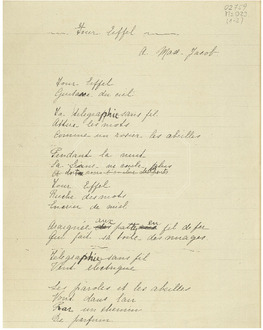 Tour Eiffel
A. Mad. Jacob
Tour Eiffel
Guitare du ciel
Ta télégraphie sans fil
Attire les mots
Comme un rosier les abeilles
Pendant la nuit
La Seine ne coule plus
Tour Eiffel
Ruche des mots
Encrier de miel
Araignée aux pattes en fil de fer
Qui fait sa toile des nuages
Télégraphie sans fil
Vent électrique
Les paroles et les abeilles
Vont dans l'air
Par un chemin
De parfum